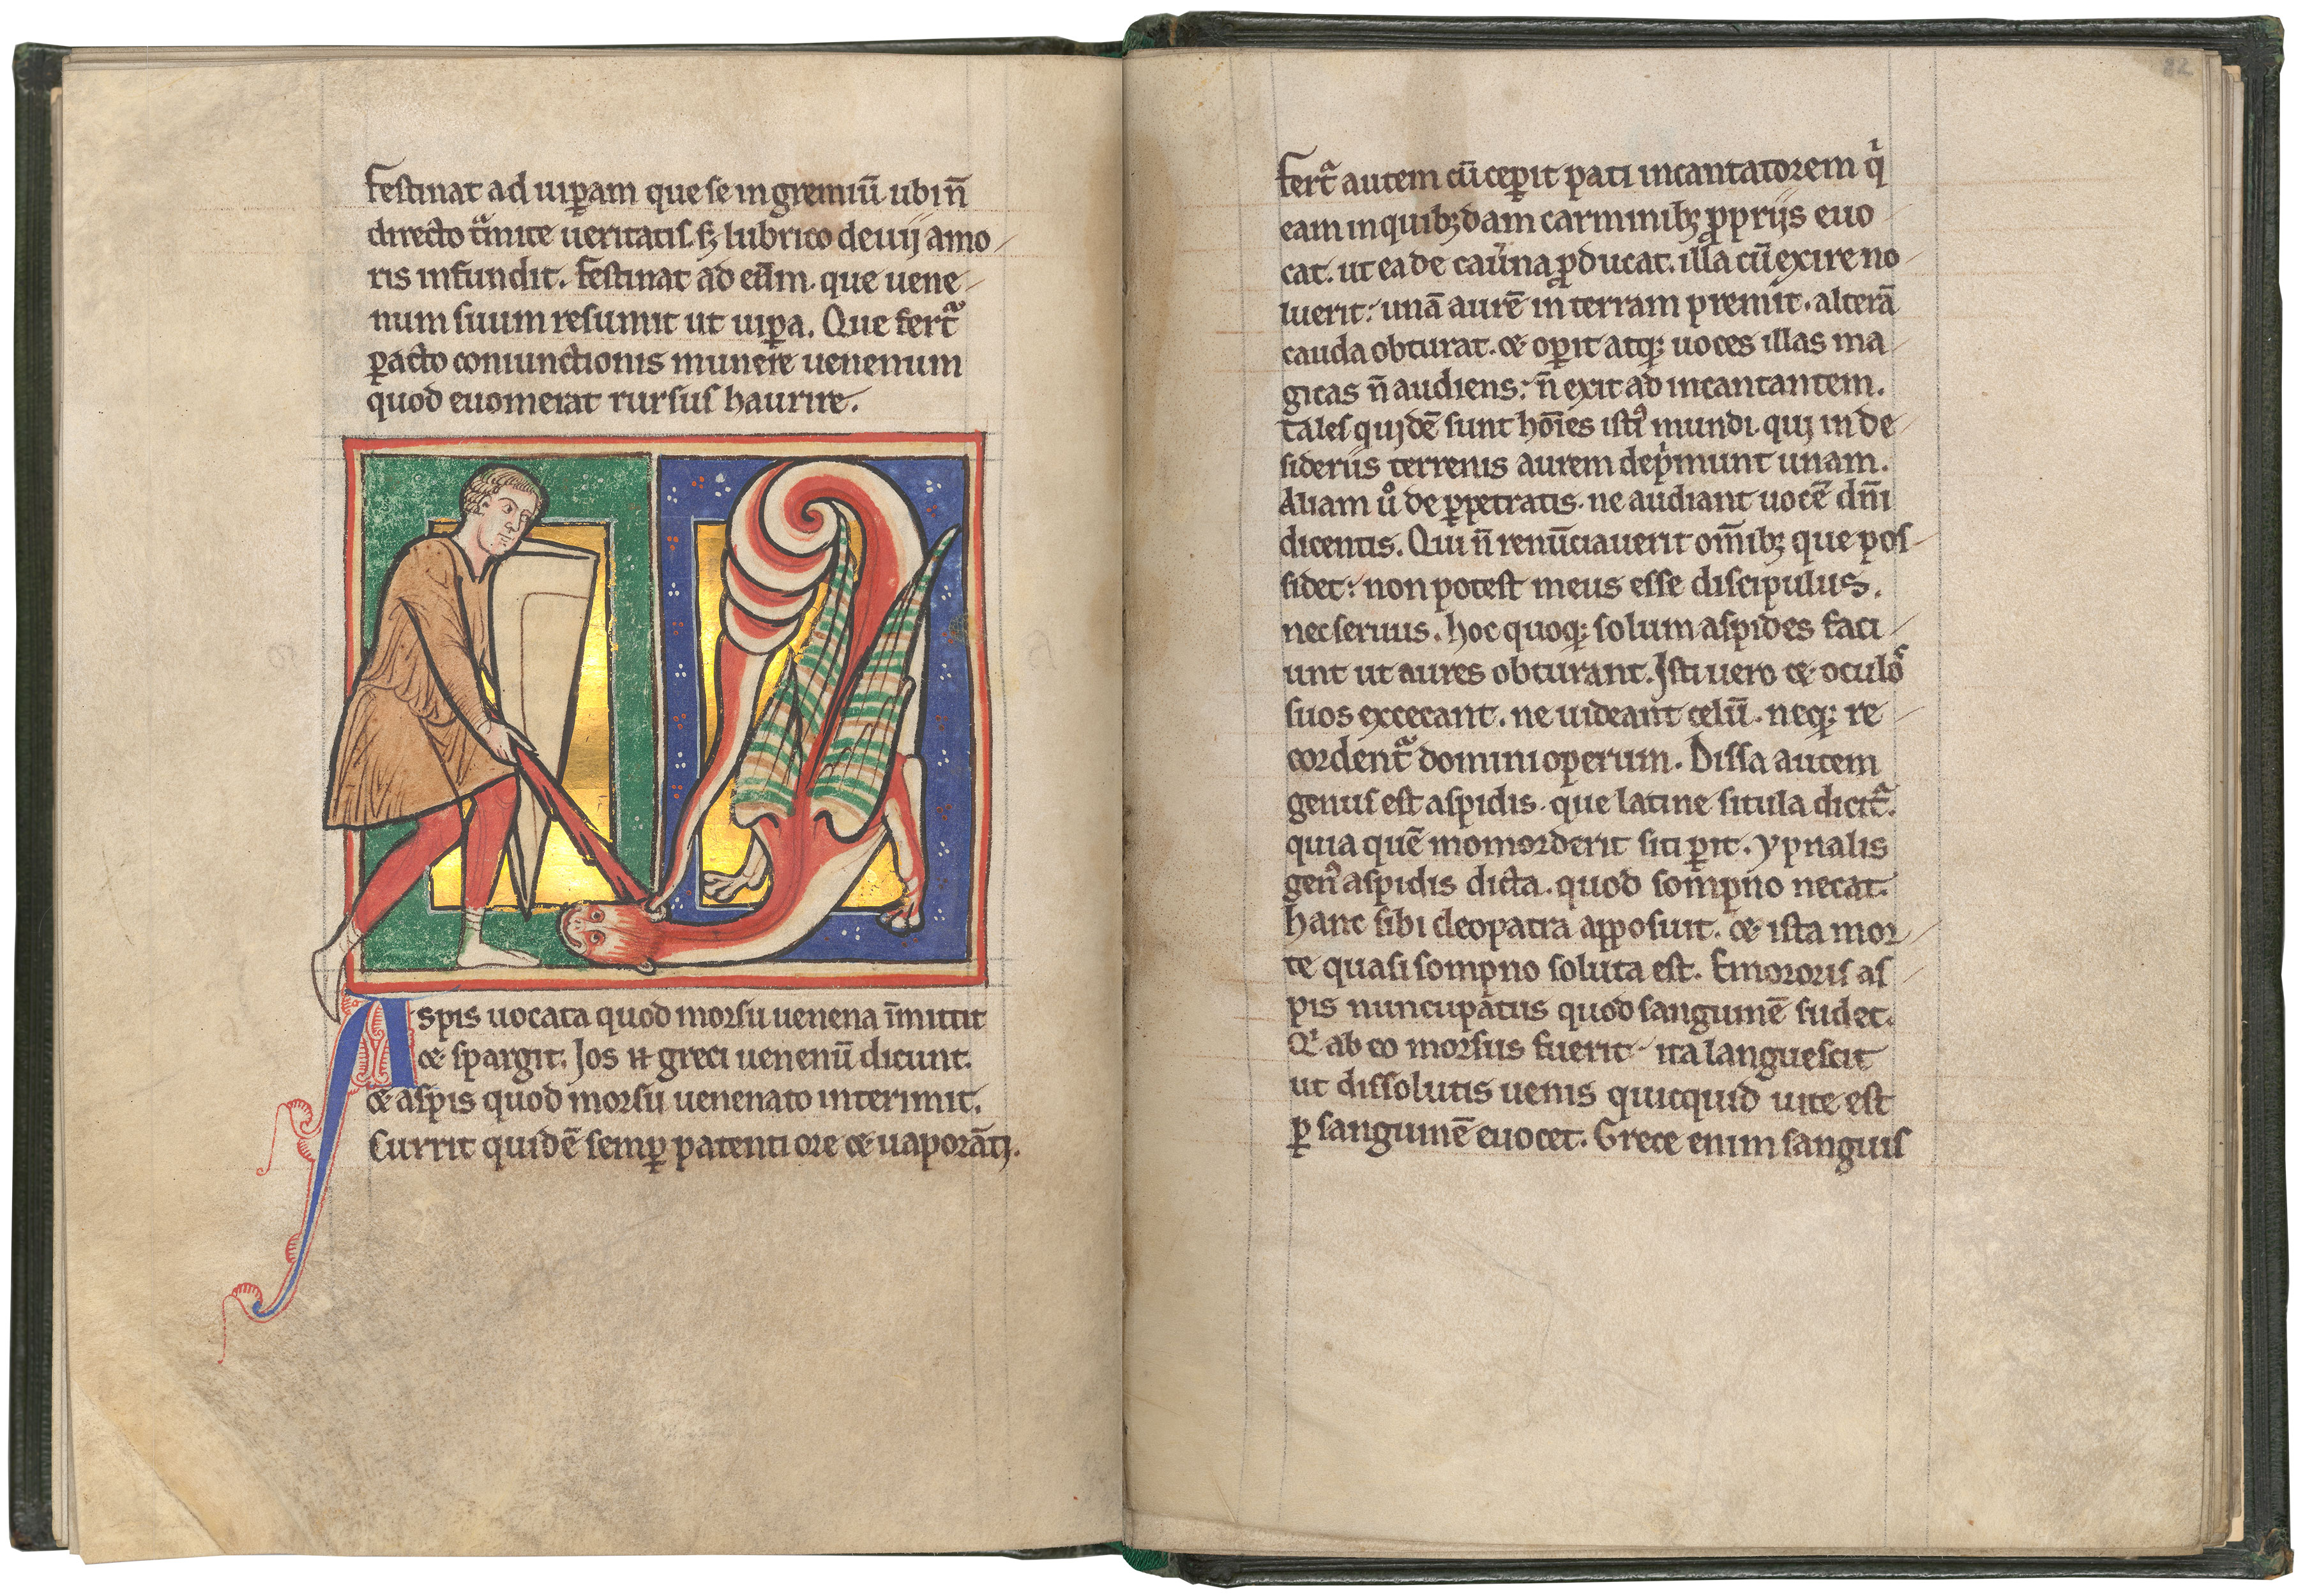 Festinat ad uiꝑam que se in gremiū ubi n̄
directo tͣmite ueritatis. sꝫ lubrico deuij amo
ris infundit. Festinat ad eū̄m. que uene
num suum resumit ut uiꝑa. Que fertᷓ
ꝑacto coniunctionis munere uenenum
quod euomerat rursus haurire.
Aspis uocata quod morsu uenena īmittit
⁊ spargit. Jos .n. greci uenenū dicunt.
⁊ aspis quod morsu uenenato interimit.
Currit quidē semꝑ patenti ore ⁊ uaporāti.
82
Fertᷓ autem cū ceꝑit pati incantatorem qͥ
eam in quibꝫdam carminibꝫ ꝓprijs euo
cat. ut ea de cau̓na ꝓducat. illa cū exire no
luerit: unā aurē in terram premit. alterā
cauda obturat. ⁊ oꝑit atqꝫ uoces illas ma
gicas n̄ audiens: n̄ exit ad incantantem.
Tales quidē sunt hoīes istiꝰ mundi. qui in de
siderijs terrenis aurem depͥmunt unam.
Aliam uͦ de ꝑpetratis. ne audiant uocē dn̄i
dicentis. Qui n̄ renūciauerit om̄ibꝫ que pos
sidet: non potest meus esse discipulus.
nec seruus. hoc quoqꝫ solum aspides faci
unt ut aures obturant. Isti uero ⁊ oculoˢ
suos excecant. ne uideant celū. neqꝫ re
cordentᷓ domini operum. Dissa autem
genus est aspidis. que latine situla dicitᷓ.
quia quē momorderit siti ꝑit. Ypnalis
genꝰ aspidis dicta. quod sompno necat.
hanc sibi cleopatra apposuit. ⁊ ista mor
te quasi sompno soluta est. Emorois as
pis nuncupatus quod sanguinē sudet.
Qͥ ab eo morsus fuerit. ita languescit
ut dissolutis uenis quicquid uite est
ꝑ sanguinē euocet. Grece enim sanguis